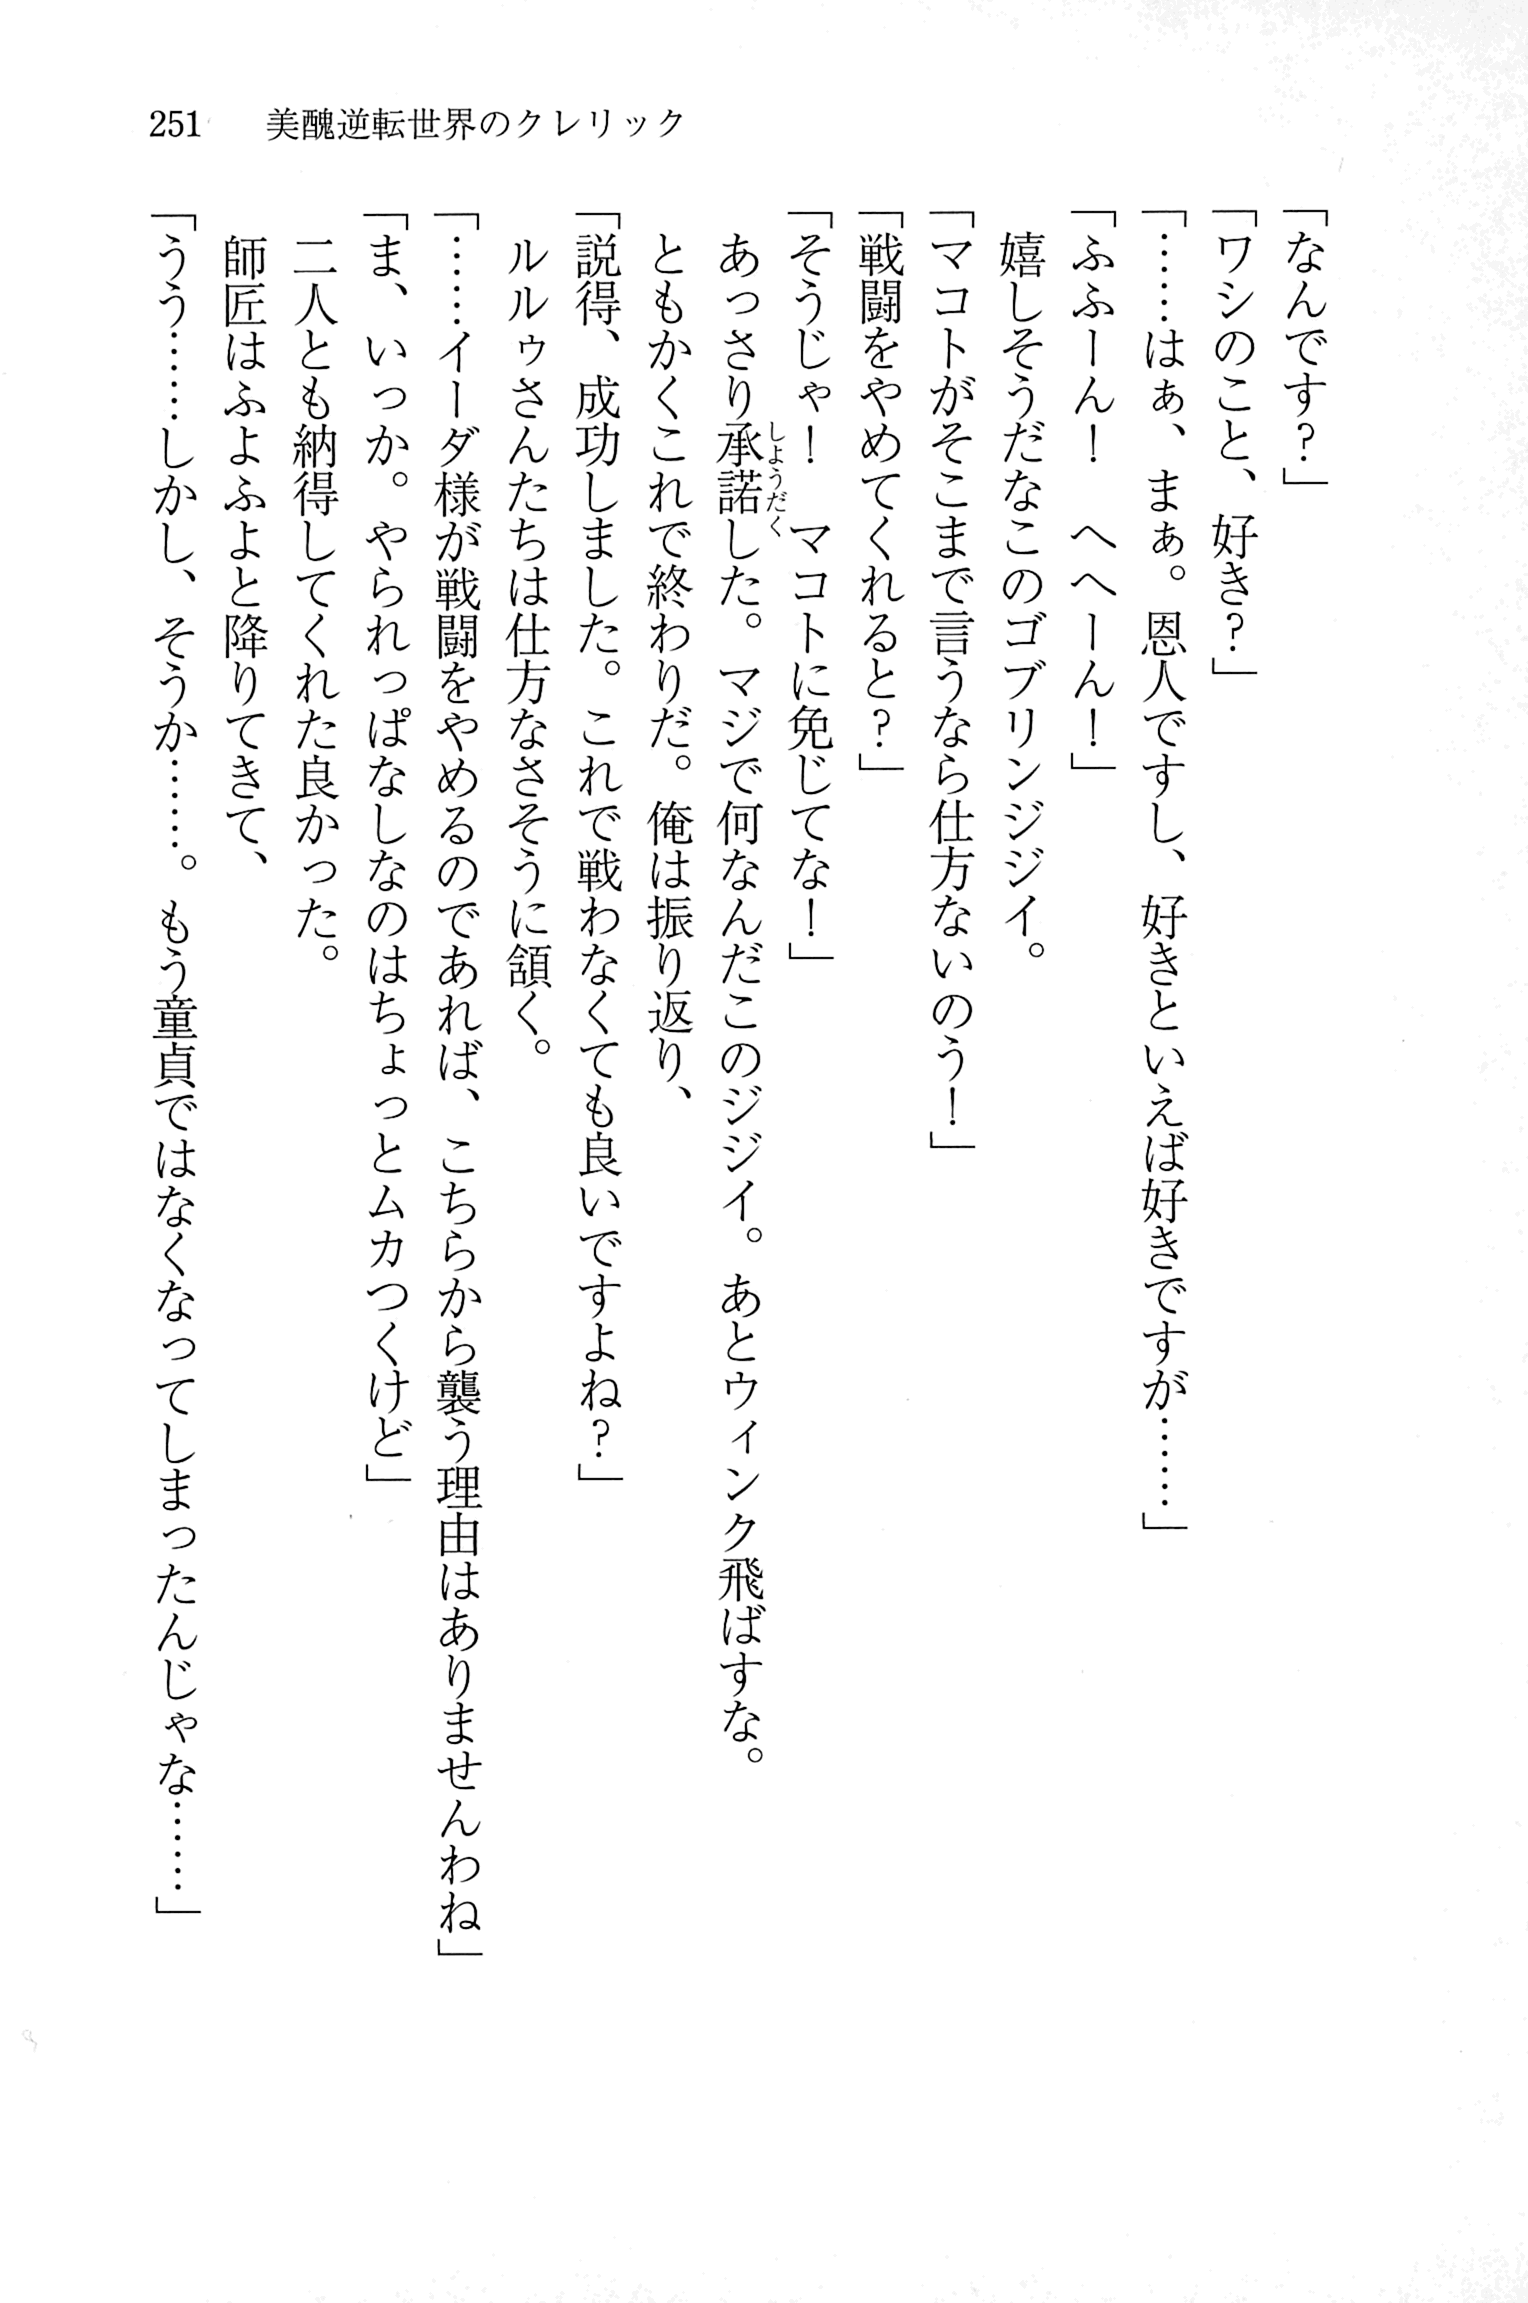 251　美醜逆転世界のクレリック
「なんです？」
「ワシのこと、好き？」
「……はぁ、まぁ。恩人ですし、好きといえば好きですが……」
「ふふーん！　へへーん！」
嬉しそうだなこのゴブリンジジイ。
「マコトがそこまで言うなら仕方ないのう！」
「戦闘をやめてくれると？」
「そうじゃ！　マコトに免じてな！」
あっさり承諾した。マジで何なんだこのジジイ。あとウィンク飛ばすな。
しようだく
ともかくこれで終わりだ。俺は振り返り、
「説得、成功しました。これで戦わなくても良いですよね？」
ルルゥさんたちは仕方なさそうに頷く。
「……イーダ様が戦闘をやめるのであれば、こちらから襲う理由はありませんわね」
「ま、いっか。やられっぱなしなのはちょっとムカつくけど」
二人とも納得してくれた良かった。
師匠はふよふよと降りてきて、
「うう……しかし、そうか……。もう童貞ではなくなってしまったんじゃな……」